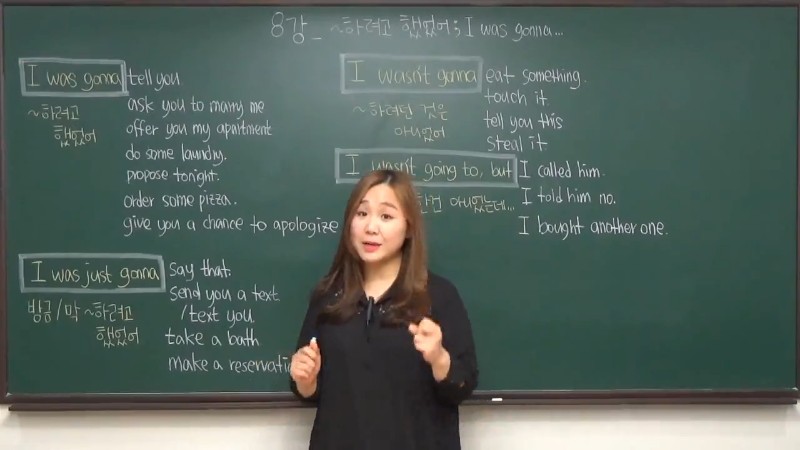 8강_ ~하려고 했었어; I was gonna...
I was gonna tell you
ask you to marry me
offer you my apartment
do some laundry.
propose tonight.
order some pizza.
give you a chance to apologize
~하려고
했었어
I was just gonna say that.
send you a text
/text you
take a bath
make a
방금/막 ~하려고
했었어
I wasn't gonna eat something.
touch it.
tell you this
Steal it
~하려던 것은
아니었어
I wasn't going to, but I called him.
I told him no.
I bought another one.
아니었는데...